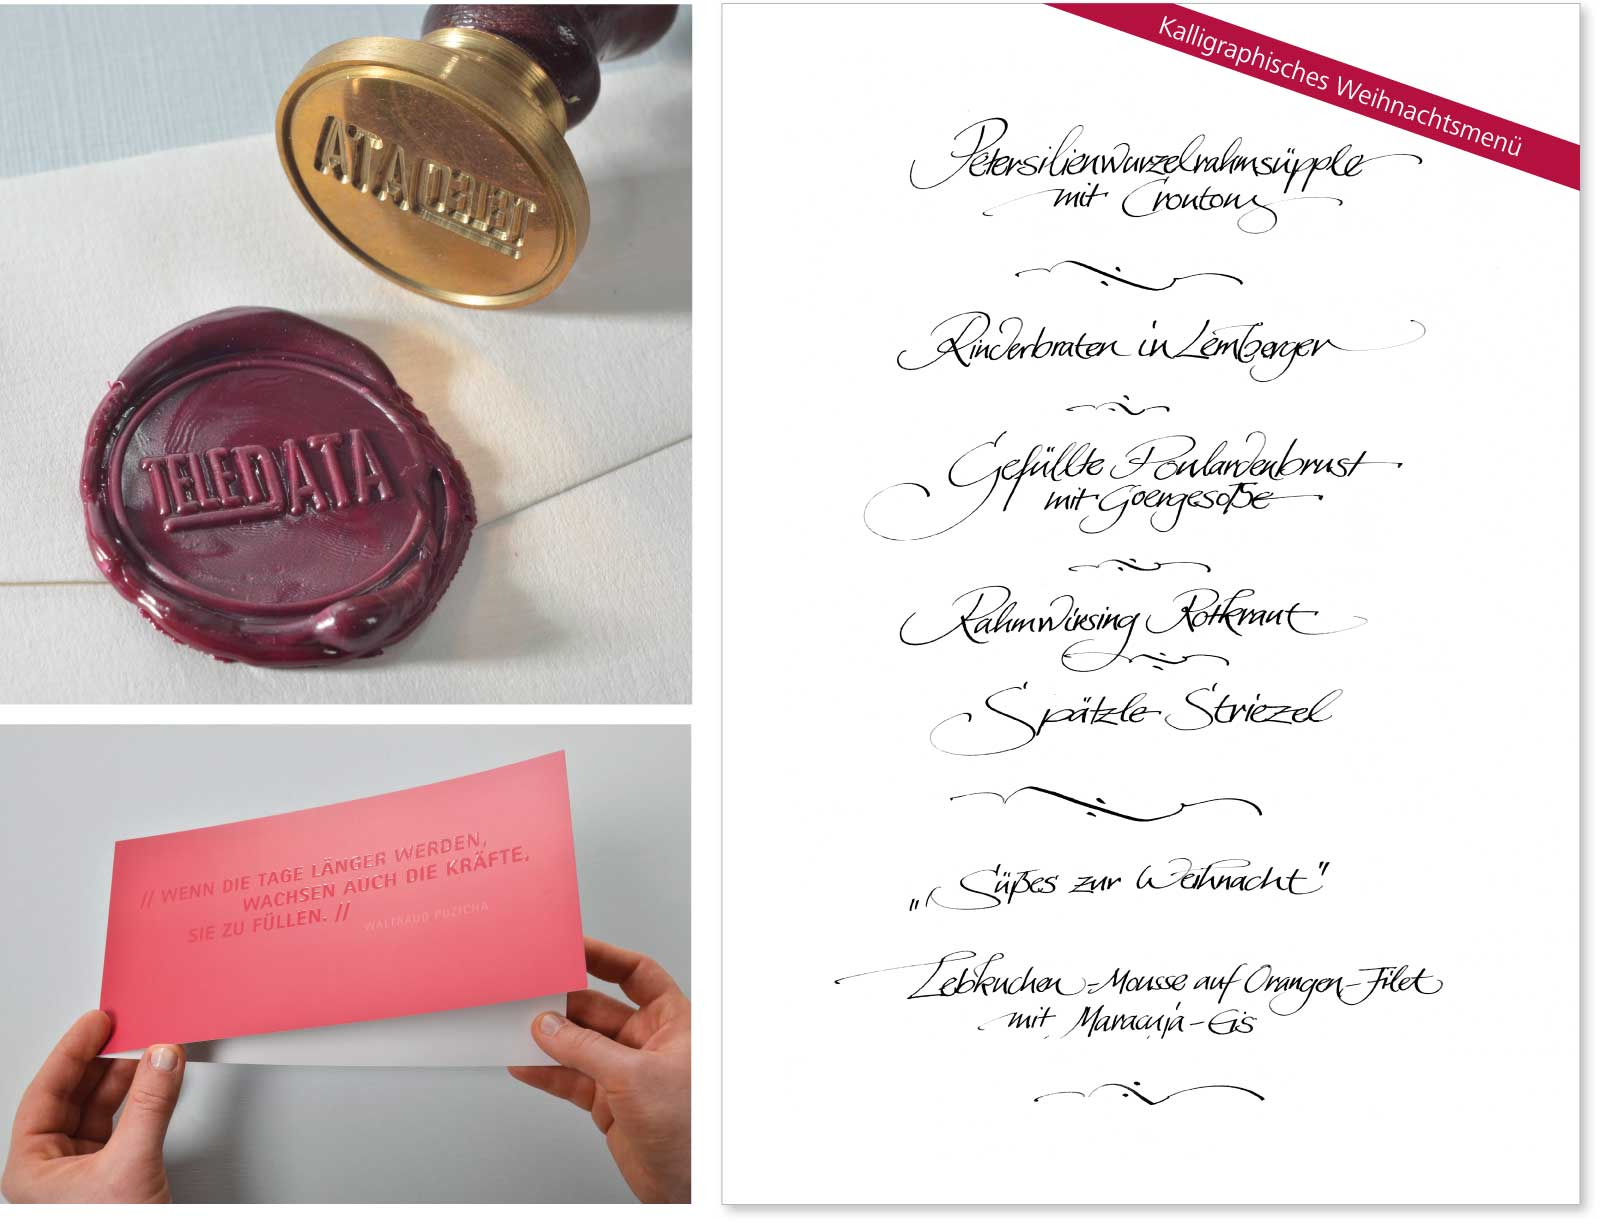 ATAD
ELET
TELEDATA
// WENN DIE TAGE LÄNGER WERDEN,
WACHSEN AUCH DIE KRÄFTE,
SIE ZU FÜLLEN. //
WALTRAUD PUZICHA
Kalligraphisches Weihnachtsmenü
Petersilienwurzelrahmsüpple
mit Croutons
Rinderbraten in Lemberger
Gefüllte Poulardenbrust
mit Soße
Rahmwirsing Rotkraut
Spätzle Striezel
„Süßes zur Weihnacht"
Lebkuchen-Mousse auf Orangen-Filet
mit Maracuja-Eis